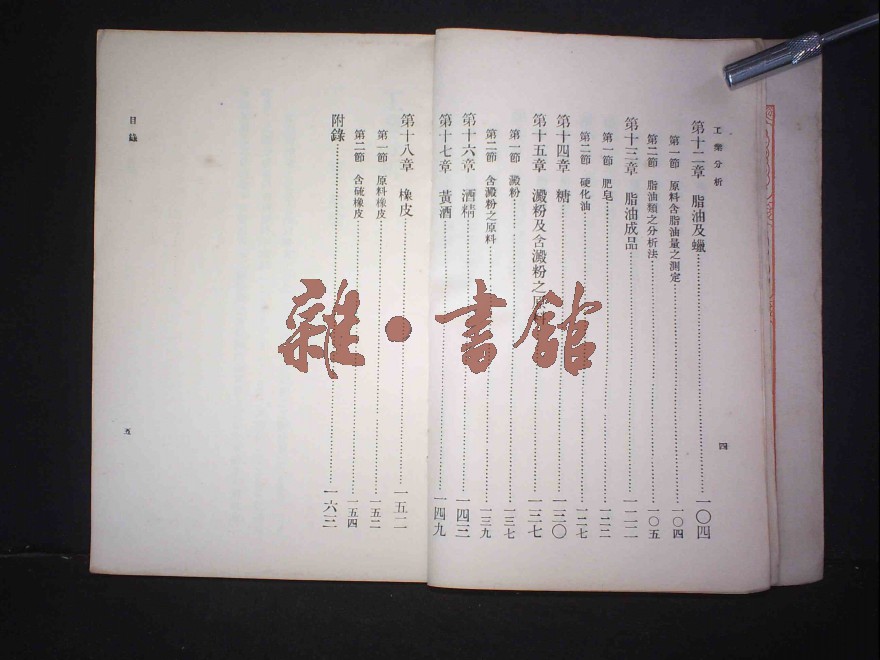 工業分析
第十二章 脂油及蠟……一〇四
第一節 原料含脂油量之測定……一〇四
第二節 脂油類之分析法……一〇五
第十三章 脂油成品……一二二
第一節 肥皂……一二二
第二節 硬化油……一二七
第十四章 糖……一三〇
第十五章 澱粉及含澱粉之原料……一三七
第一節 澱粉……一三七
第二節 含澱粉之原料……一三九
第十六章 酒精……一四三
第十七章 黃酒……一四九
四
目錄
第十八章 橡皮……一五二
第一節 原料橡皮……一五二
第二節 含硫橡皮……一五四
附錄……一六三
五
雜·書館